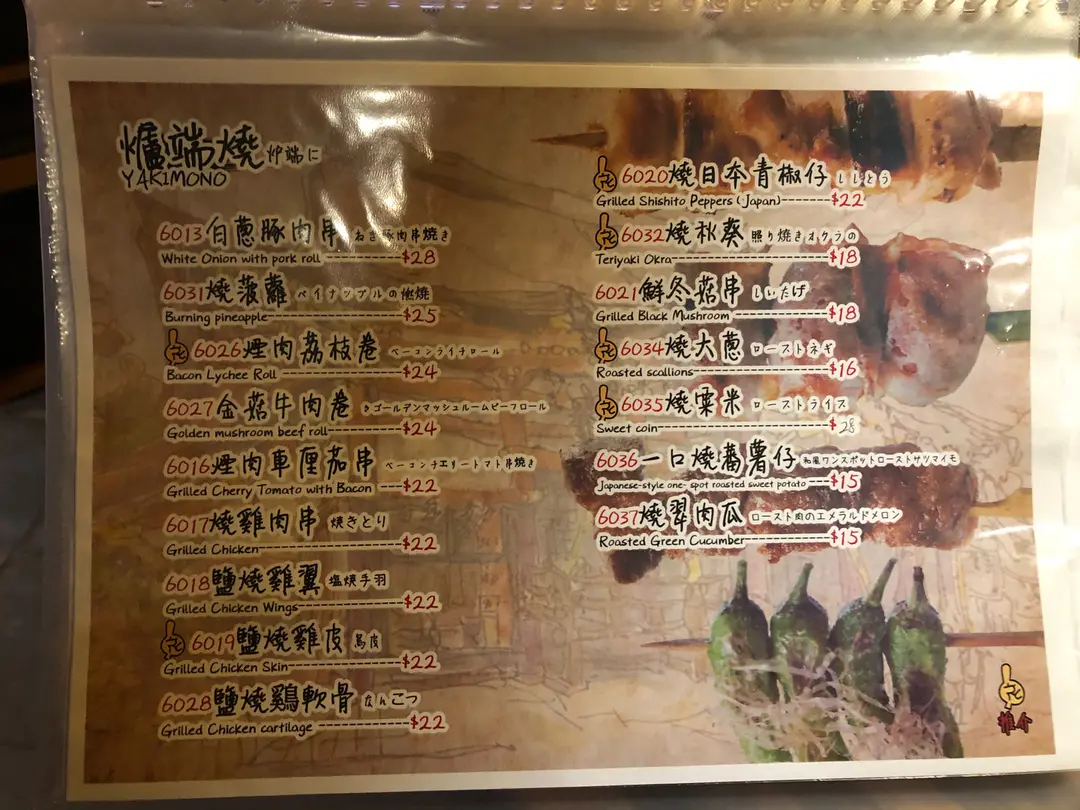 爐端燒 炉端に
YAKIMONO
6013白蔥豚肉串 ねぎ豚肉串焼き
White Onion with pork roll ----------$28
6031燒菠蘿 パイナップルの燃焼
Burning pineapple----------------$25
6026煙肉荔枝卷 ベーコンライチロール
Bacon Lychee Roll ----------------$24
6027金菇牛肉卷 ゴールデンマッシュルームビーフロール
Golden mushroom beef roll----------$24
6016煙肉車厘茄串 ベーコンチェリートマト串焼き
Grilled Cherry Tomato with Bacon ---$22
6017燒雞肉串 焼きとり
Grilled Chicken-------------------$22
6018鹽燒雞翼 塩焼手羽
Grilled Chicken Wings-------------$22
6019鹽燒雞皮 鳥皮
Grilled Chicken Skin---------------$22
6028鹽燒鷄軟骨 なんこつ
Grilled Chicken cartilage -----------$22
6020燒日本青椒仔 ししとう
Grilled Shishito Peppers (Japan)------$22
6032燒秋葵 照り焼きオクラの
Teriyaki Okra---------------------$18
6021鮮冬菇串 しいたけ
Grilled Black Mushroom ------------$18
6034燒大蔥 ローストネギ
Roasted scallions-----------------$16
6035燒粟米 ローストライス
Sweet coin----------------------$28
6036一口燒蕃薯仔 和風ワンスポットローストサツマイモ
Japanese-style one- spot roasted sweet potato ---$15
6037燒翠肉瓜 ロースト肉のエメラルドメロン
Roasted Green Cucumber-----------$15
推介